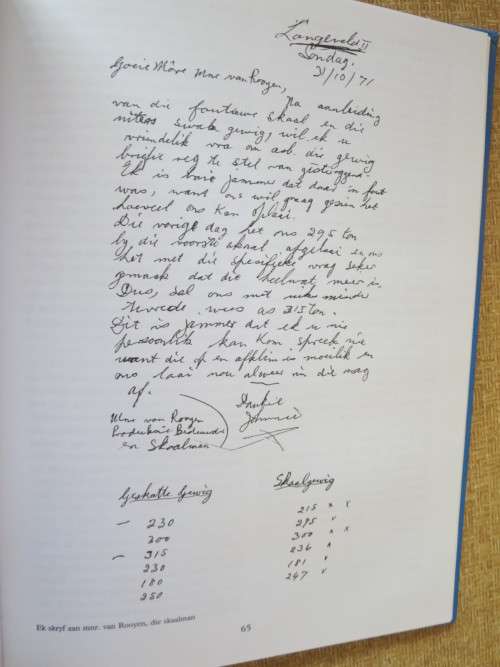 Langeveld II
Sondag.
31/10/71
Goeie Môre Mnr. van Rooyen,
Na aanleiding
van die foutiewe skaal en die
swak gewig, wil ek u
vriendelik vra om asb. die gewig
briefie reg te stel van gisteraand.
Ek is baie jammer dat daar 'n fout
was, want ons wil graag gesien het
hoeveel ons kan oplaai.
Die vorige dag het ons 295 ton
by die voorste skaal afgelaai en ons
het met die spesifieke vrag seker
gemaak dat dit heelwat meer is.
Dus, sal ons met minder
tevrede wees as 315 ton.
Dit is jammer dat ek u nie
persoonlik kan kom spreek nie
want die op en afklim is moeilik en
ons laai nou alweer in die vrag
af.
Dankie
Mnr. van Rooyen
Produksie
en Skaalman
Geskatte Gewig
Skaalgewig
– 230
300
– 315
230
180
250
215
295
300
236
181
247
Ek skryf aan mnr. van Rooyen, die skaalman
65